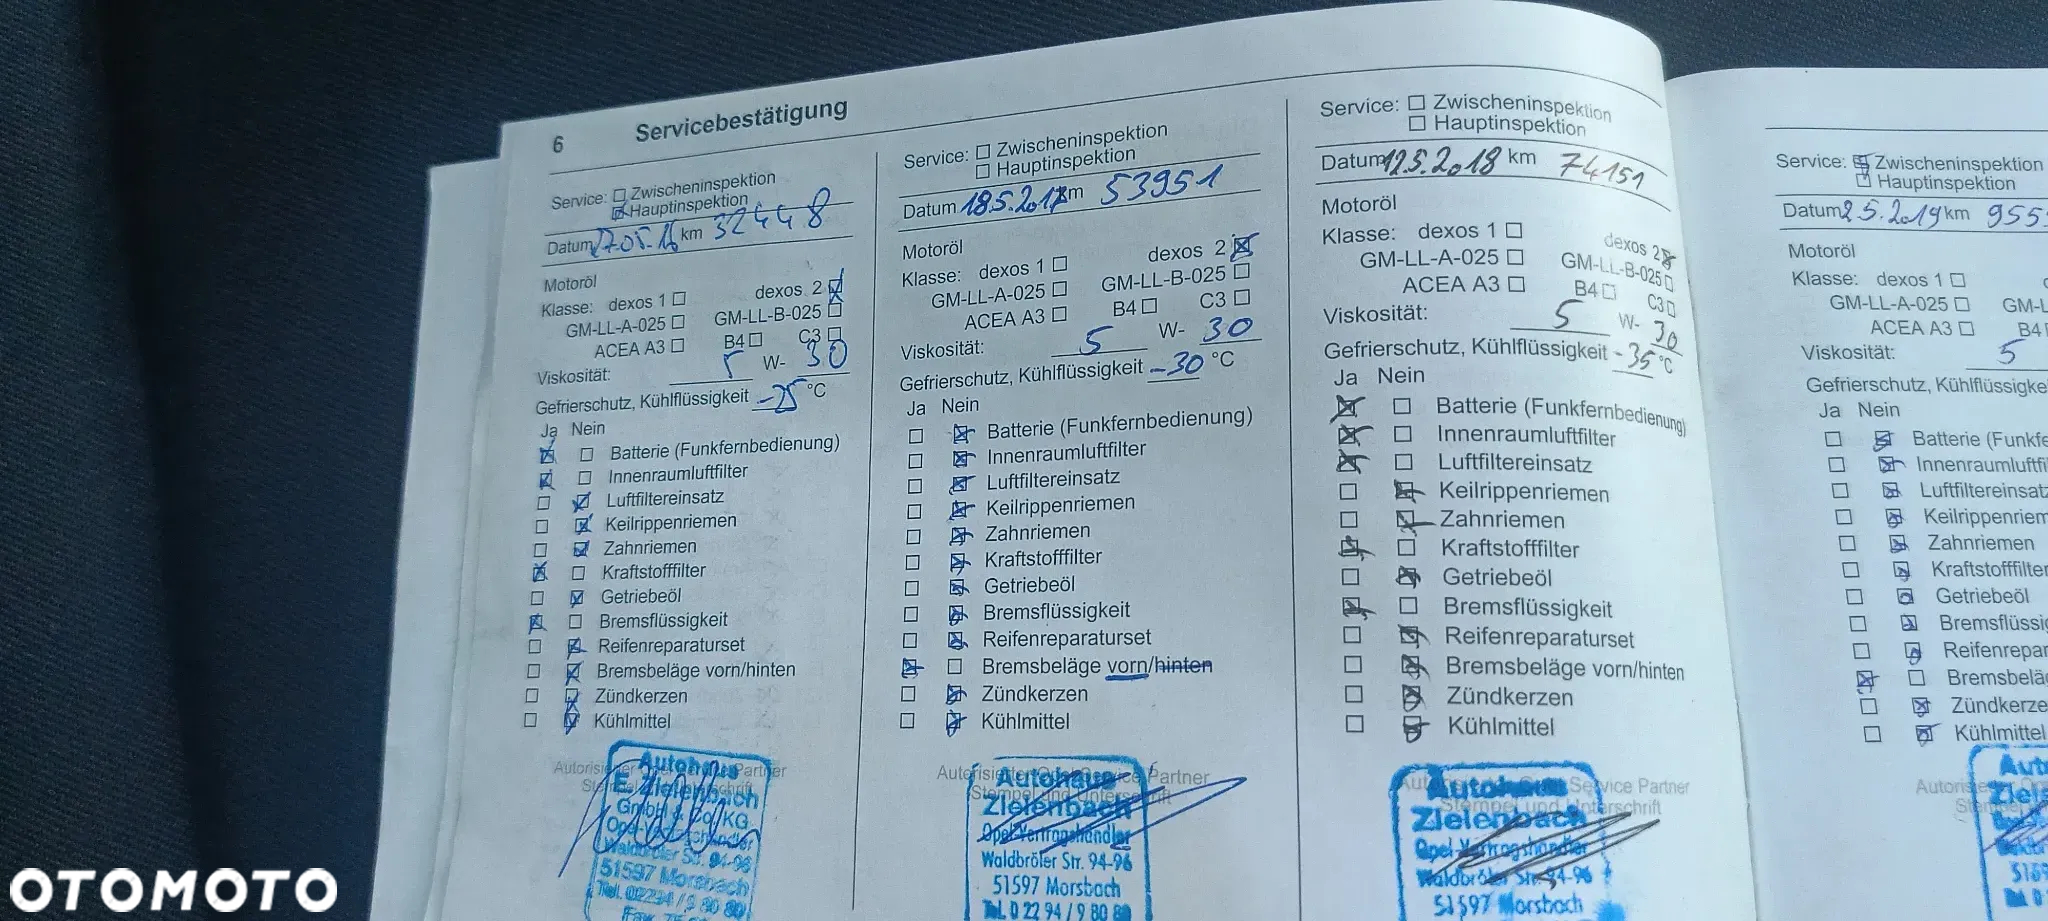 6 Servicebestätigung
Service: Zwischeninspektion
Hauptinspektion
Datum km 32448
Motoröl
Klasse: dexos 1 dexos 2
GM-LL-A-025 GM-LL-B-025
ACEA A3 B4 C3
Viskosität: 5 W- 30
Gefrierschutz, Kühlflüssigkeit -25 °C
Ja Nein
Batterie (Funkfernbedienung)
Innenraumluftfilter
Luftfiltereinsatz
Keilrippenriemen
Zahnriemen
Kraftstofffilter
Getriebeöl
Bremsflüssigkeit
Reifenreparaturset
Bremsbeläge vorn/hinten
Zündkerzen
Kühlmittel
Autohaus
E. Zielenbach
GmbH & Co. KG
Waldbröler Str. 94-96
51597 Morsbach
Tel. 02294 / 9 80 80
Service: Zwischeninspektion
Hauptinspektion
Datum 18.5.2017 km 53951
Motoröl
Klasse: dexos 1 dexos 2
GM-LL-A-025 GM-LL-B-025
ACEA A3 B4 C3
Viskosität: 5 W- 30
Gefrierschutz, Kühlflüssigkeit -30 °C
Ja Nein
Batterie (Funkfernbedienung)
Innenraumluftfilter
Luftfiltereinsatz
Keilrippenriemen
Zahnriemen
Kraftstofffilter
Getriebeöl
Bremsflüssigkeit
Reifenreparaturset
Bremsbeläge vorn/hinten
Zündkerzen
Kühlmittel
Service Partner
Stempel und Unterschrift
Autohaus
Zielenbach
Opel-Vertragshändler
Waldbröler Str. 94-96
51597 Morsbach
Tel. 0 22 94 / 9 80 80
Service: Zwischeninspektion
Hauptinspektion
Datum 12.5.2018 km 74151
Motoröl
Klasse: dexos 1 dexos 2
GM-LL-A-025 GM-LL-B-025
ACEA A3 B4 C3
Viskosität: 5 W- 30
Gefrierschutz, Kühlflüssigkeit -35 °C
Ja Nein
Batterie (Funkfernbedienung)
Innenraumluftfilter
Luftfiltereinsatz
Keilrippenriemen
Zahnriemen
Kraftstofffilter
Getriebeöl
Bremsflüssigkeit
Reifenreparaturset
Bremsbeläge vorn/hinten
Zündkerzen
Kühlmittel
Service Partner
Stempel und Unterschrift
Autohaus
Zielenbach
Opel-Vertragshändler
Waldbröler Str. 94-96
51597 Morsbach
Service: Zwischeninspektion
Hauptinspektion
Datum 2.5.2019 km 955
Motoröl
Klasse: dexos 1
GM-LL-A-025 GM-L
ACEA A3 B4
Viskosität: 5
Gefrierschutz, Kühlflüssigke
Ja Nein
Batterie (Funkfe
Innenraumluftfi
Luftfiltereinsatz
Keilrippenriem
Zahnriemen
Kraftstofffilter
Getriebeöl
Bremsflüssig
Reifenrepar
Bremsbelä
Zündkerze
Kühlmittel
OTOMOTO